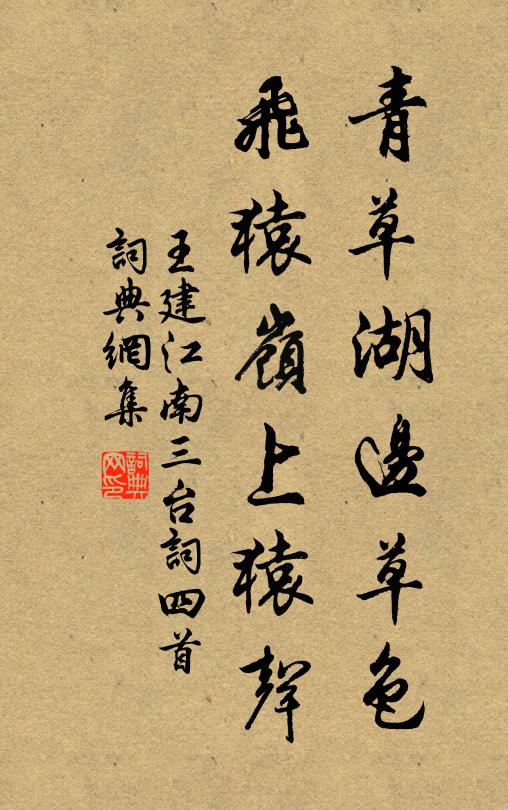 青草湖邊草色
飛猿嶺上猿聲
王建江南三台詞四首
詞典網集
詞典网印